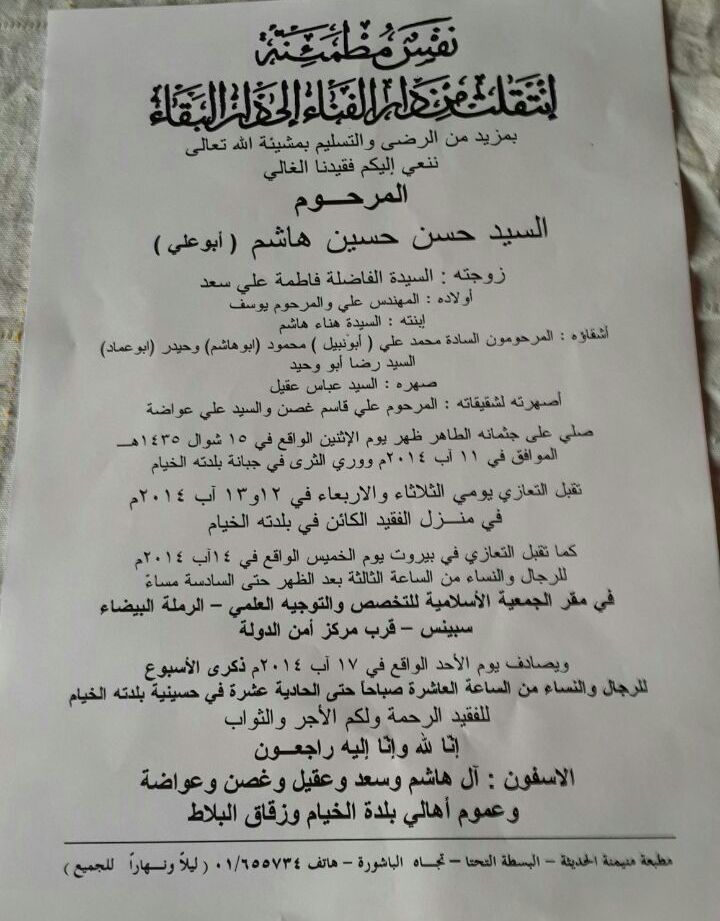 نفس مطمئنة
إنتقلت من دار الفناء إلى دار البقاء
بمزيد من الرضى والتسليم بمشيئة الله تعالى
ننعي إليكم فقيدنا الغالي
المرحـــوم
السيد حسن حسين هاشم ( أبوعلي )
زوجته : السيدة الفاضلة فاطمة علي سعد
أولاده : المهندس علي والمرحوم يوسف
إبنته : السيدة هناء هاشم
أشقاؤه : المرحومون السادة محمد علي ( أبونبيل ) محمود (ابوهاشم) وحيدر (ابوعماد)
السيد رضا أبو وحيد
صهره : السيد عباس عقيل
أصهرته لشقيقاته : المرحوم علي قاسم غصن والسيد علي عواضة
صلي على جثمانه الطاهر ظهر يوم الإثنين الواقع في ١٥ شوال ١٤٣٥هـــ
الموافق في ١١ آب ٢٠١٤م ووري الثرى في جبانة بلدته الخيام
تقبل التعازي يومي الثلاثاء والاربعاء في ١٢و١٣ آب ٢٠١٤م
في منـــزل الفقيد الكائن في بلدته الخيام
كما تقبل التعازي في بيروت يوم الخميس الواقع في ١٤آب ٢٠١٤م
للرجال والنساء من الساعة الثالثة بعد الظهر حتى السادسة مساءً
في مقر الجمعية الأسلامية للتخصص والتوجيه العلمي – الرملة البيضاء
سبينس – قرب مركز أمن الدولة
ويصادف يوم الأحد الواقع في ١٧ آب ٢٠١٤م ذكرى الأسبوع
للرجال والنساء من الساعة العاشرة صباحاً حتى الحادية عشرة في حسينية بلدته الخيام
للفقيد الرحمة ولكم الأجر والثواب
إنّا لله وإنّا إليه راجعــون
الاسفون : آل هاشم وسعد وعقيل وغصن وعواضة
وعموم أهالي بلدة الخيام وزقاق البلاط
مطبعة منيمنة الحديثة – البسطة التحتا – تجاه الباشورة – هاتف ٠١/٦٥٥٧٣٤ ( ليلاً ونهاراً للجميع )